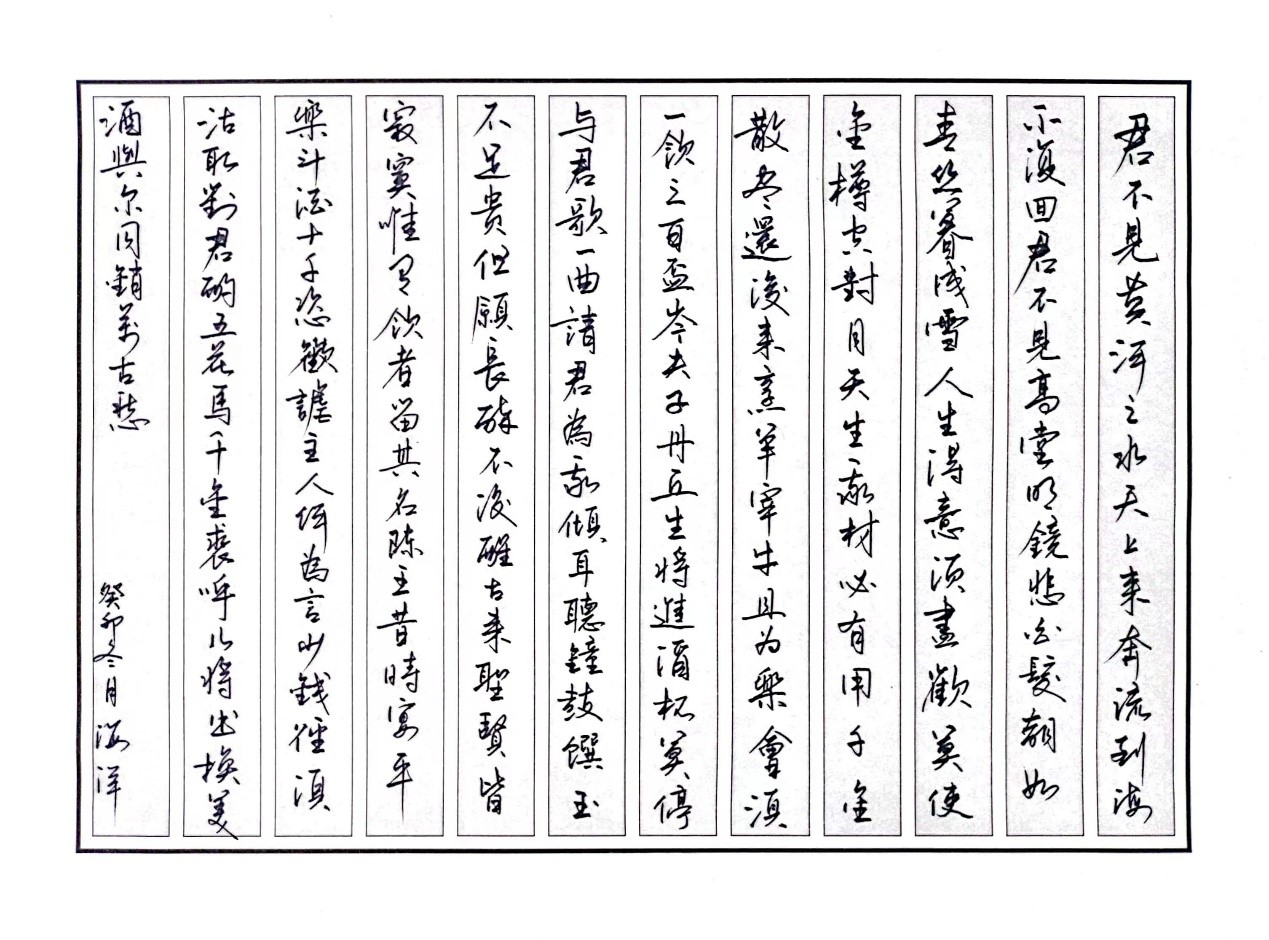 君不見黄河之水天上来奔流到海
不復回君不見高堂明鏡悲白髮朝如
青丝暮成雪人生得意須盡歡莫使
金樽空對月天生我材必有用千金
散尽還復来烹羊宰牛且为樂會須
一飲三百盃岑夫子丹丘生將進酒杯莫停
与君歌一曲請君為我傾耳聽鐘鼓饌玉
不足貴但願長醉不復醒古来聖賢皆
寂寞惟有飲者留其名陈王昔時宴平
樂斗酒十千恣歡謔主人何為言少錢徑須
沽取對君酌五花馬千金裘呼儿將出換美
酒與尔同銷萬古愁
癸卯冬月海洋